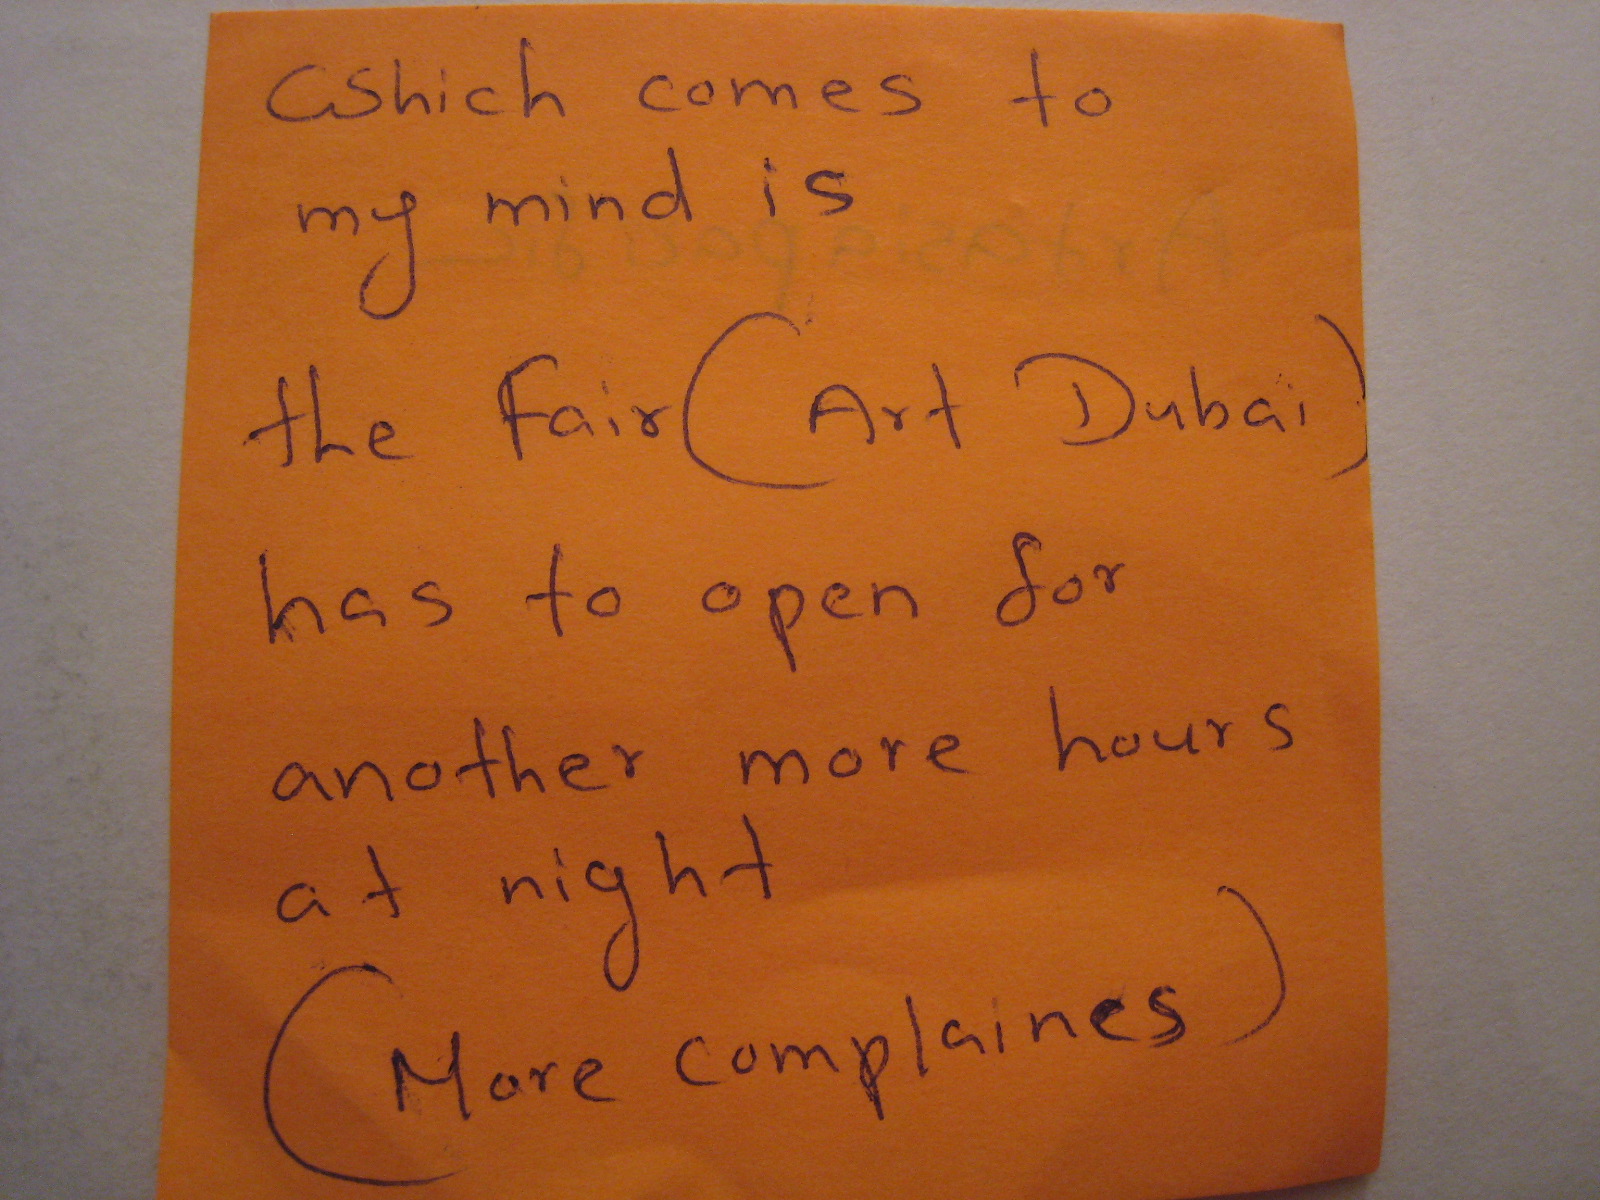 Which comes to
my mind is
the Fair (Art Dubai)
has to open for
another more hours
at night
(More complaines)